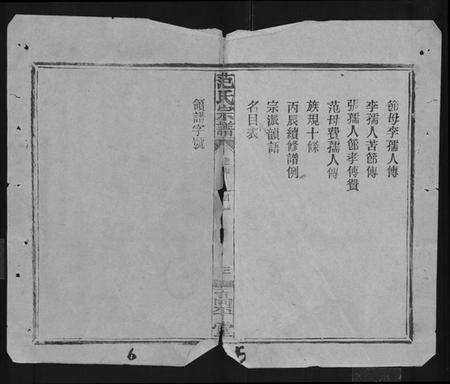 節母李孺人傳
李孺人苦節傳
張孺人節孝傳贊
范母費孺人傳
族規十條
丙辰續修譜例
宗派韻語
名目表
范氏宗譜
三
堂
領譜字號
6
5